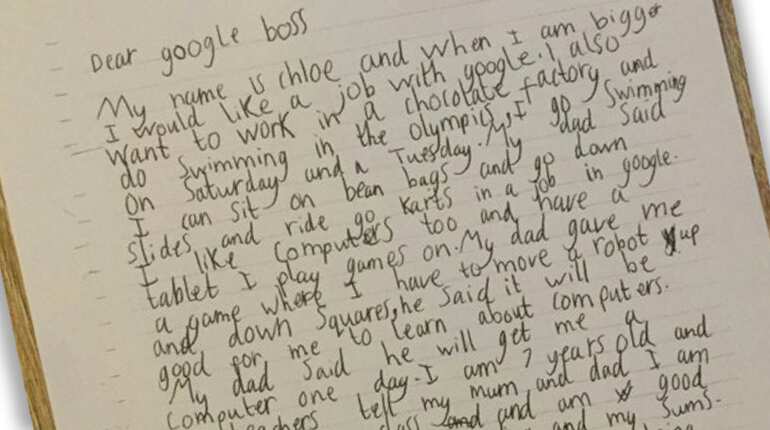 Dear google boss
My name is chloe and when I am bigger
I would like a job with google. I also
want to work in a chocolate factory and
do swimming in the olympics, I go swimming
on Saturday and a Tuesday. My dad said
I can sit on bean bags and go down
slides and ride go karts in a job in google.
I like computers too and have a
tablet I play games on. My dad gave me
a game where I have to move a robot up
and down squares, he said it will be
good for me to learn about computers.
My dad said he will get me a
computer one day. I am 7 years old and
tell my mum and dad I am
and and am good
and my sums.